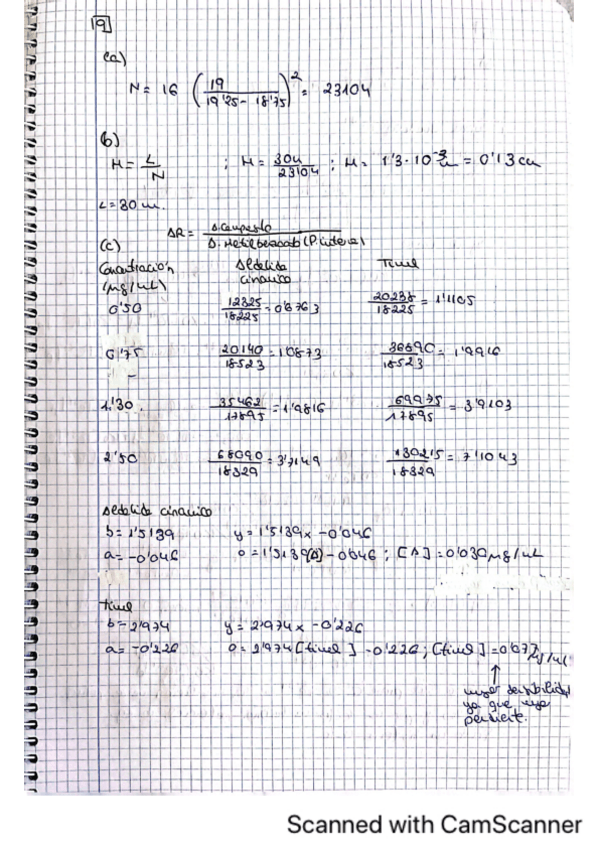 9
(a)
N = 16 (19 / 19'25 - 18'75)² = 23104
(b)
H = L/N ; H = 30m/23104 ; H = 1'3·10⁻³ m = 0'13 cm
L = 30 m.
(c) AR = A.Compuesto / A. Metilbenzoato (P. interno)
Concentración (μg/mL) Aldehida cinámico Timol
0'50 12325/18225 = 0'6763 20238/18225 = 1'1105
0'75 20140/18523 = 1'0873 36890/18523 = 1'9916
1'30. 35462/17895 = 1'9816 69975/17895 = 3'9103
2'50 68090/18329 = 3'7149 130215/18329 = 7'1043
Aldehida cinámico
b = 1'5139 y = 1'5139x - 0'046
a = -0'046 0 = 1'5139[A] - 0'046 ; [A] = 0'030 μg/mL
Timol
b = 2'974 y = 2'974x - 0'226
a = -0'226 0 = 2'974 [timol] - 0'226 ; [timol] = 0'077 μg/mL
mayor sensibilidad
ya que mayor
pendiente.
Scanned with CamScanner